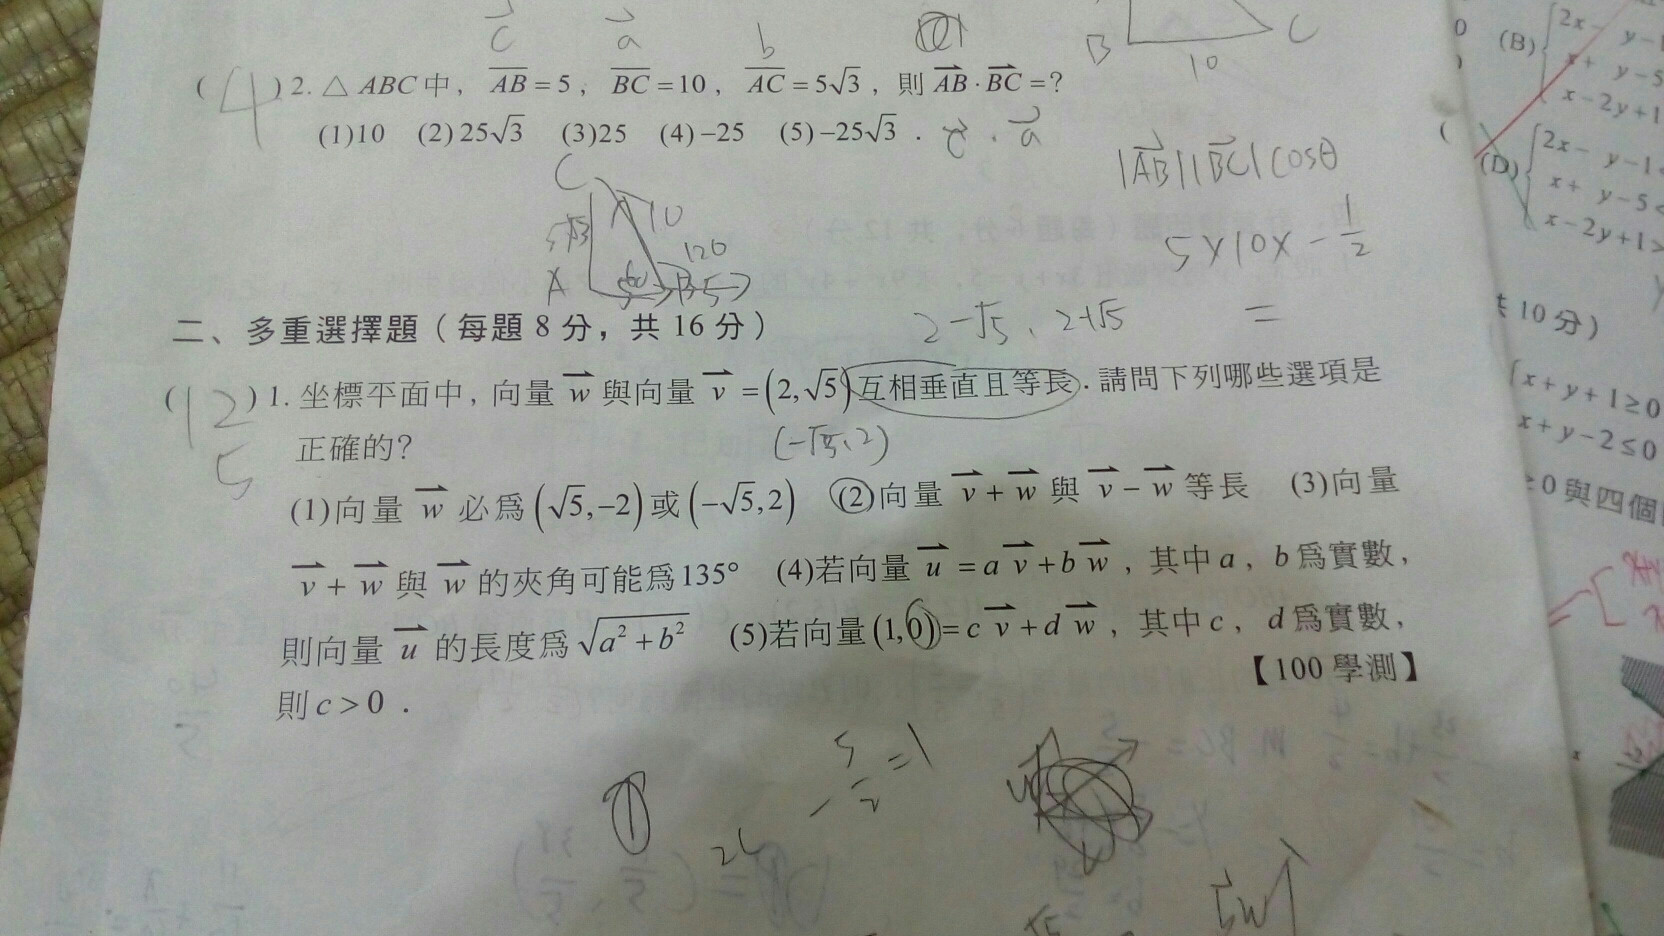 c a b
B 10 C
( 4 ) 2. △ ABC 中， AB = 5 ， BC = 10 ， AC = 5√3 ，則 AB · BC = ?
(1)10 (2) 25√3 (3)25 (4) –25 (5) –25√3 . c · a
|AB||BC| cosθ
5×10×-1/2
=
C
5√3 10
120
A 60 B 5
5
二、多重選擇題（每題 8 分，共 16 分）
2-√5、2+√5
( 12 5 ) 1. 坐標平面中，向量 w 與向量 v = (2,√5) 互相垂直且等長 . 請問下列哪些選項是
正確的?
(-√5、2)
(1)向量 w 必為 (√5,–2) 或 (–√5,2) (2)向量 v + w 與 v – w 等長 (3)向量
v + w 與 w 的夾角可能為135° (4)若向量 u = a v + b w ，其中 a ， b 為實數，
則向量 u 的長度為 √a² + b² (5)若向量 (1,0) = c v + d w ，其中 c ， d 為實數，
則 c > 0 .
【100 學測】
(B) 2x – y –1
x + y –5
x – 2y +1
(D) 2x – y –1<
x + y –5<
x – 2y +1>
共 10 分）
x + y + 1≥0
x + y – 2≤0
≥0與四個